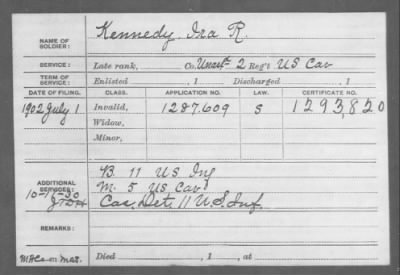 NAME OF SOLDIER: Kennedy, Ira R.
SERVICE: Late rank, Co. Unast 2 Reg't US Cav
TERM OF SERVICE: Enlisted , 1 Discharged , 1
DATE OF FILING. CLASS. APPLICATION NO. LAW. CERTIFICATE NO.
1902 July 1 Invalid, 1287.609 S 1293,820
Widow,
Minor,
ADDITIONAL SERVICES: B. 11 US Inf
M. 5 US Cav
Cas. Det. 11 U.S. Inf.
REMARKS:
Died , 1 , at